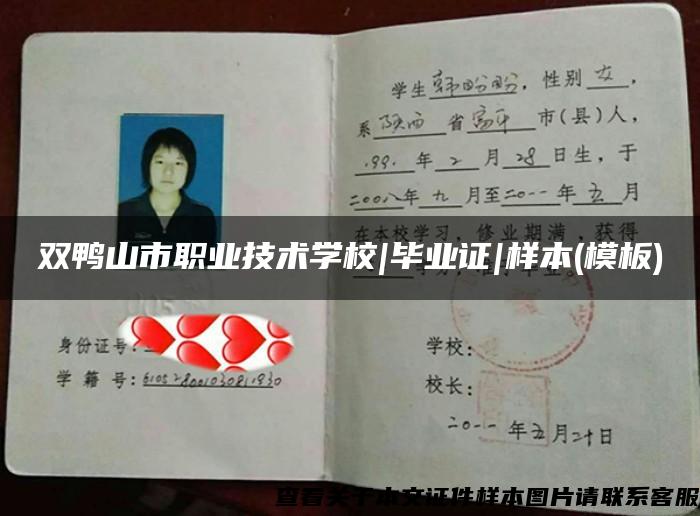 学生韩盼盼，性别女，
系陕西省富平市(县)人，
1991年2月28日生，于
二00八年九月至二0一一年五月
在本校学习，修业期满，获得
双鸭山市职业技术学校|毕业证|样本(模板)
身份证号:
学籍号:
学校:
校长:
二0一一年五月二十日
查看关于本文证件样本图片请联系客服